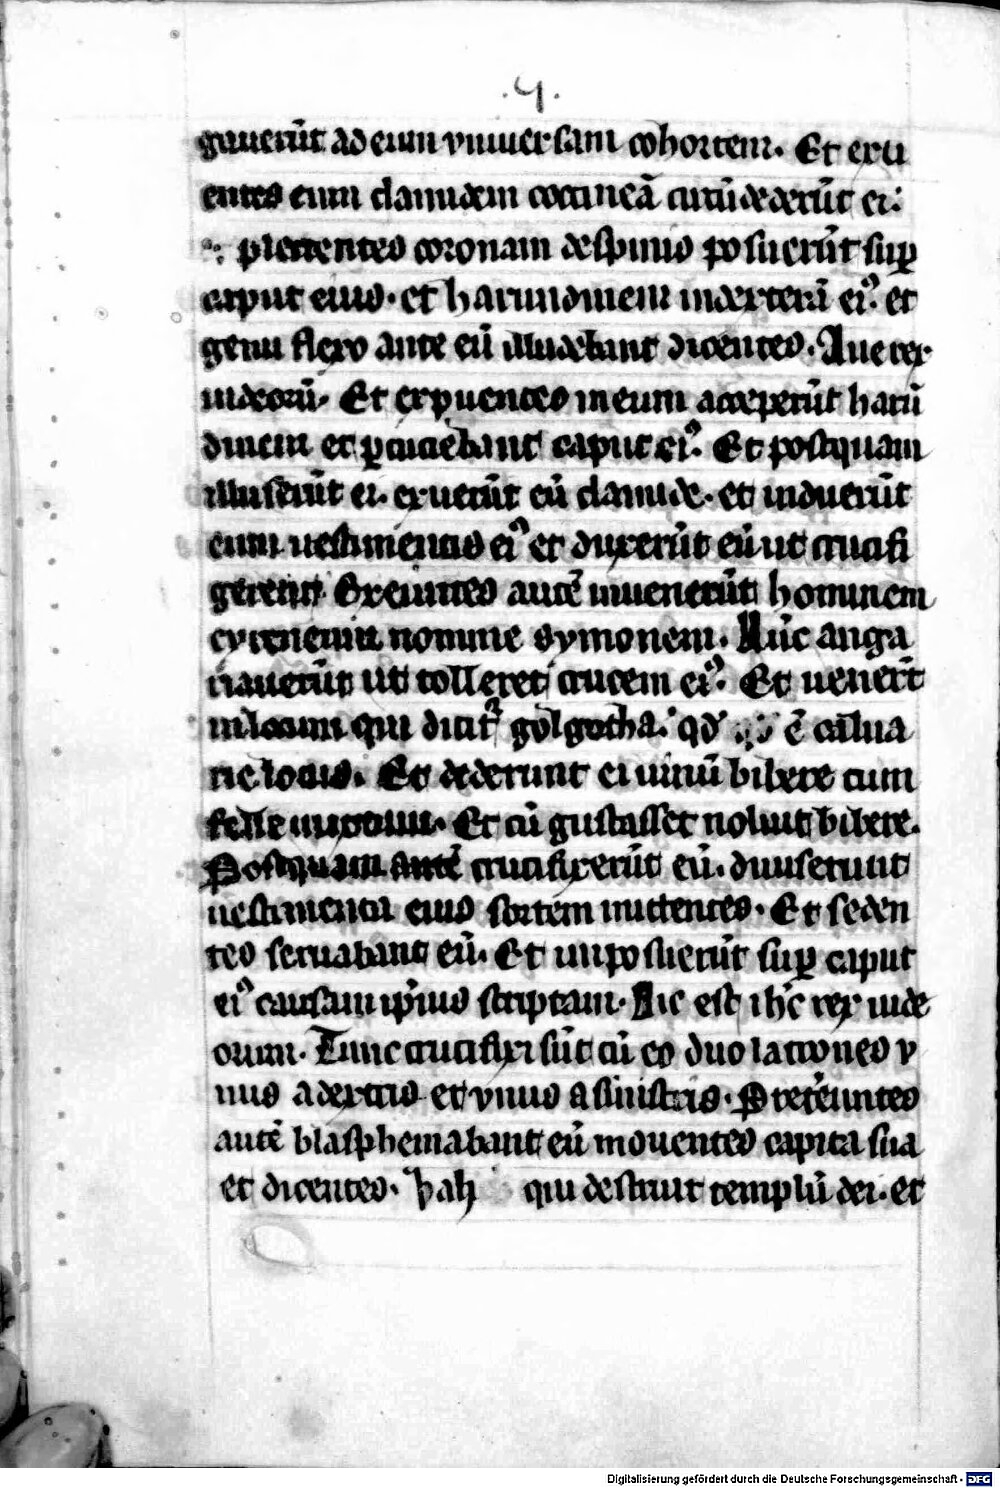 .4.
gauerūt ad eum vniuersam cohortem. Et exu
entes eum clamidem coccineā circūdederūt ei:
plectentes coronam despinis posuerūt suꝑ
caput eius. et harundinem indexterā eiꝰ. et
genu flexo ante eū illudebant dicentes. Aue rex
iudeorū. Et expuentes ineum acceperūt harū
dinem et ꝑcuciebant caput eiꝰ. Et postquam
illuserūt ei. exuerūt eū clamide. et induerūt
eum uestimentis eiꝰ et duxerūt eū ut crucifi
gerent. Exeuntes autē inuenerūt hominem
cyreneum nomine symonem. Hūc anga
riauerūt ut tolleret crucem eiꝰ. Et uenerūt
inlocum qui dicit᷑ golgotha. qd̕ ē calua
rie locus. Et dederunt ei uinū bibere cum
felle mixtum. Et cū gustasset noluit bibere.
Postquam autē crucifixerūt eū. diuiserunt
uestimenta eius sortem mittentes. Et seden
tes seruabant eū. Et imposuerūt suꝑ caput
eiꝰ causam ip̄ius scriptam. Hic est ih̄c rex iude
orum. Tunc crucifixi sūt cū eo duo latrones v
nus adextris et vnus asinistris. Pretereūntes
autē blasphemabant eū mouentes capita sua
et dicentes. Vah qui destruit templū dei. et
Digitalisierung gefördert durch die Deutsche Forschungsgemeinschaft - DFG